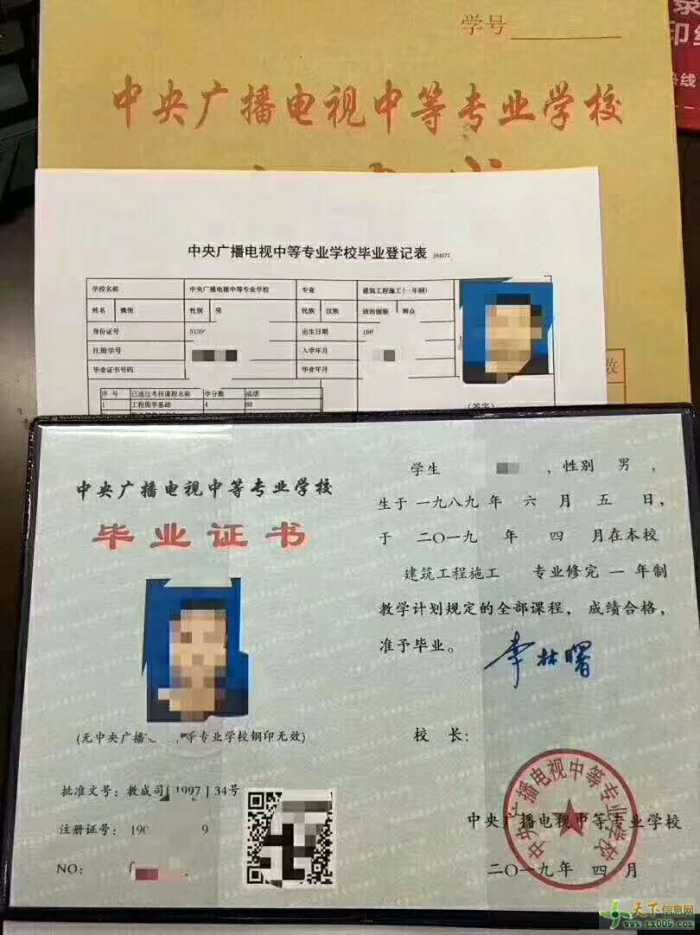 学号
中央广播电视中等专业学校
中央广播电视中等专业学校毕业登记表
学校名称 中央广播电视中等专业学校 专业 建筑工程施工(一年制)
姓名 性别 男 民族 汉族 政治面貌 群众
身份证号 出生日期
注册学号 入学年月
毕业证书号码 毕业年月
序号 已通过考核课程名称 学分数 成绩
1 工程力学基础 4
(签字)
数
中央广播电视中等专业学校
毕业证书
(无中央广播 等专业学校钢印无效)
批准文号:教成司 1997 34号
注册证号:190 9
NO:
学生 ,性别 男 ,
生于一九八九年 六 月 五 日,
于 二〇一九 年 四 月在本校
建筑工程施工 专业修完 一 年制
教学计划规定的全部课程,成绩合格,
准予毕业。
李林曙
校 长:
中央广播电视中等专业学校
中央广播电视中等专业学校
二〇一九年 四 月
天下信息网
www.tx006.com